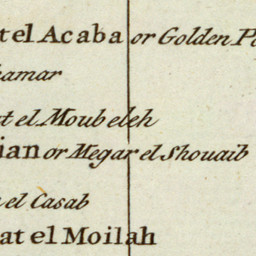 tel Acaba or Golden P
amar
at el Moubeleh
ian or Megar el Shouaib
el Casab
at el Moilah